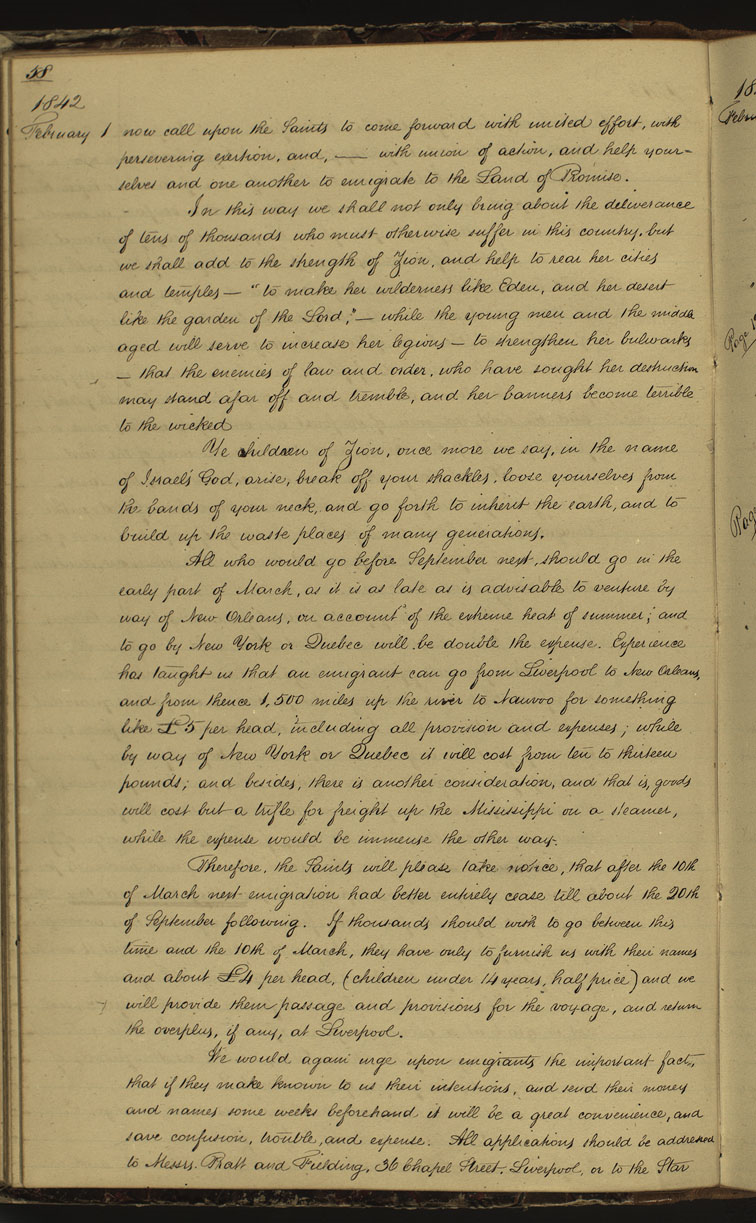 58
1842
February 1 now call upon the Saints to come forward with united effort, with
persevering exertion, and, — with union of action, and help your-
selves and one another to emigrate to the Land of Promise.
In this way we shall not only bring about the deliverance
of tens of thousands who must otherwise suffer in this country, but
we shall add to the strength of Zion, and help to rear her cities
and temples — "to make her wilderness like Eden, and her desert
like the garden of the Lord," — while the young men and the middle
aged will serve to increase her legions — to strengthen her bulwarks
— that the enemies of law and order, who have sought her destruction
may stand afar off and tremble, and her banners become terrible
to the wicked
Ye children of Zion, once more we say, in the name
of Israel's God, arise, break off your shackles, loose yourselves from
the bands of your neck, and go forth to inherit the earth, and to
build up the waste places of many generations.
All who would go before September next, should go in the
early part of March, as it is as late as is advisable to venture by
way of New Orleans, on account of the extreme heat of summer; and
to go by New York or Quebec will be double the expense. Experience
has taught us that an emigrant can go from Liverpool to New Orleans,
and from thence 1,500 miles up the river to Nauvoo for something
like £5 per head, including all provision and expenses; while
by way of New York or Quebec it will cost from ten to thirteen
pounds; and besides, there is another consideration, and that is, goods
will cost but a trifle for freight up the Mississippi on a steamer,
while the expense would be immense the other way.
Therefore, the Saints will please take notice, that after the 10th
of March next emigration had better entirely cease till about the 20th
of September following. If thousands should wish to go between this
time and the 10th of March, they have only to furnish us with their names
and about £4 per head, (children under 14 years, half price) and we
will provide them passage and provisions for the voyage, and return
the overplus, if any, at Liverpool.
We would again urge upon emigrants the important fact,
that if they make known to us their intentions, and send their money
and names some weeks beforehand it will be a great convenience, and
save confusion, trouble, and expense. All applications should be addressed
to Messrs. Pratt and Fielding, 36 Chapel Street, Liverpool, or to the Star